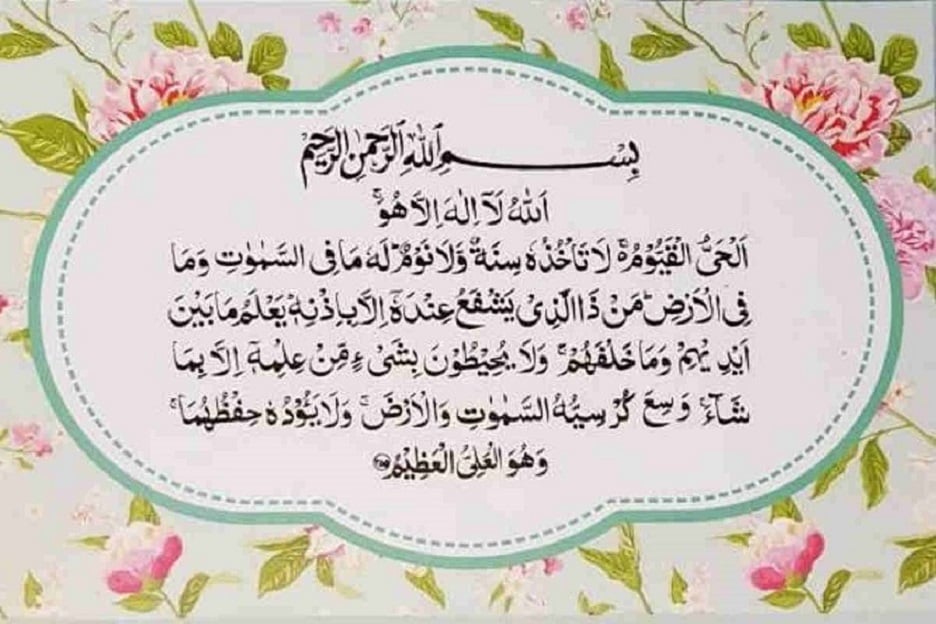 بِسْمِ اللهِ الرَّحْمٰنِ الرَّحِيْمِ
اَللهُ لَاۤ اِلٰهَ اِلَّا هُوَۚ
اَلْحَیُّ الْقَیُّوْمُ۬ۚ لَا تَاْخُذُهٗ سِنَةٌ وَّلَا نَوْمٌؕ لَهٗ مَا فِی السَّمٰوٰتِ وَمَا
فِی الْاَرْضِؕ مَنْ ذَا الَّذِیْ یَشْفَعُ عِنْدَهٗۤ اِلَّا بِاِذْنِهٖؕ یَعْلَمُ مَا بَیْنَ
اَیْدِیْهِمْ وَمَا خَلْفَهُمْۚ وَلَا یُحِیْطُوْنَ بِشَیْءٍ مِّنْ عِلْمِهٖۤ اِلَّا بِمَا
شَآءَۚ وَسِعَ كُرْسِیُّهُ السَّمٰوٰتِ وَالْاَرْضَۚ وَلَا یَـُٔوْدُهٗ حِفْظُهُمَاۚ
وَهُوَ الْعَلِیُّ الْعَظِیْمُ ﴿۲۵۵﴾